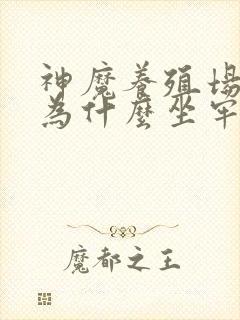 神魔養殖場
為什麼坐牢
魔都之王